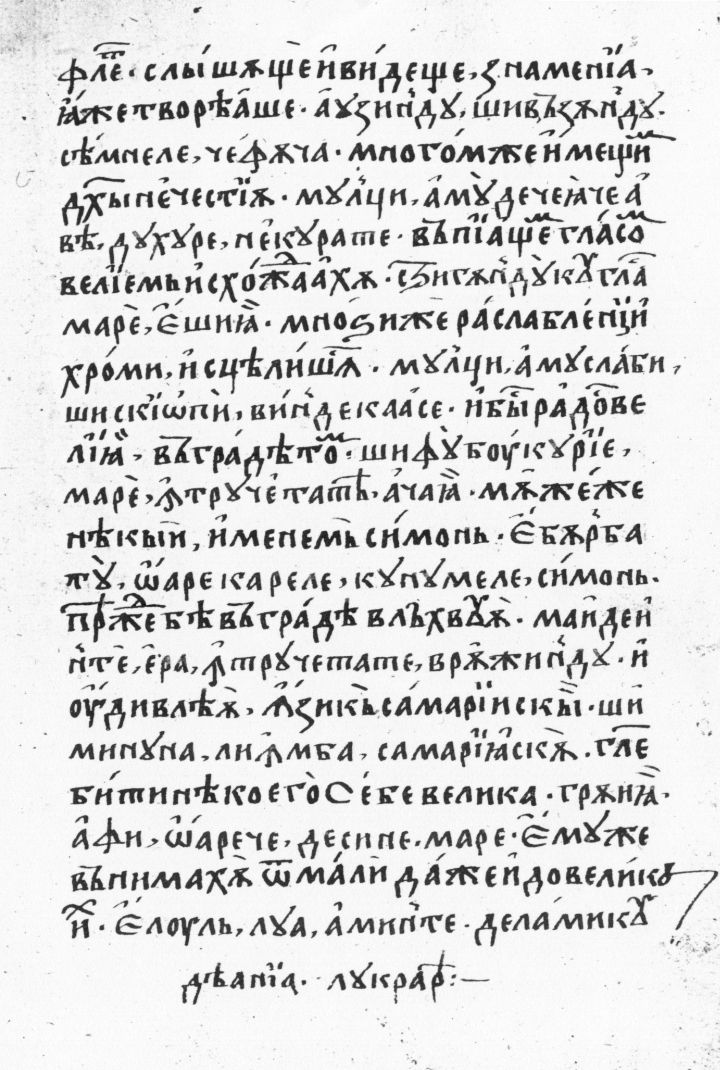 фл҃е · слы́шѫщей ви́деще, знаменїа,
ꙗ҆́же творѣаше · а҆ꙋзи́ндꙋ, шивъзѫ́ндꙋ ·
сѣ́мнеле, чефѫча · много́мже и҆мещи́мⷨ
дх҃ы не́честїѧ · мꙋлци, а҆мꙋ̀дечеꙗче а҆
вѣ, дꙋхꙋре, не́кꙋрате · въпїаще́мⷨ гла́соⷨ
велїемь и҆схо́жⷣаахѫ · стригѫндꙋ̀кꙋ гла́
маре̏, е҆шиꙗ̀ · мноѕи же ра́слабле́нїи и҆
хро́ми, и҆сцѣли́шѧⷭ · мꙋлци, а҆мꙋсла́би,
шискїѡпи, ви́ндекаасе · и҆бы́ⷭ ра́доⷭве
лїꙗ̀, въ гра́дѣ то́ⷨ · шифꙋ̀ боу́кꙋрїе,
маре̏, ꙟ҆трꙋче́татѣ, а҆чаꙗ̀ · мѫ́же́же
нѣкый, и҆менемь си́монь · е҆бѫрба
тꙋ̀, ѡ҆аре кареле, кꙋ нꙋмеле, си́монь ·
прѣ́жⷣе бѣ въ гра́дѣ влъхвꙋѧ̀ · май де и҆
нте̏, е҆ра, ꙟ҆трꙋчетате, врѫжи́ндꙋ · и҆
ѹ҆дивлѣѧ̀, ѧ҆зикь самарїи скы̏й · ши
минꙋна, лимба, самарїꙗскѫ · гл҃е
би́ти нѣкоего̀ се́бе велика · грѫиꙗ̀ ·
а҆фи, ѡ҆арече, десине, маре · е҆мꙋже
вънимахѫ̀ ѿ ма́ли да́же и҆ до вели́кыⷯ
и҆ · е҆лоуль, лꙋа, а҆ми́нте · дела микꙋ
дѣанїа · лꙋкрарⷬ :—